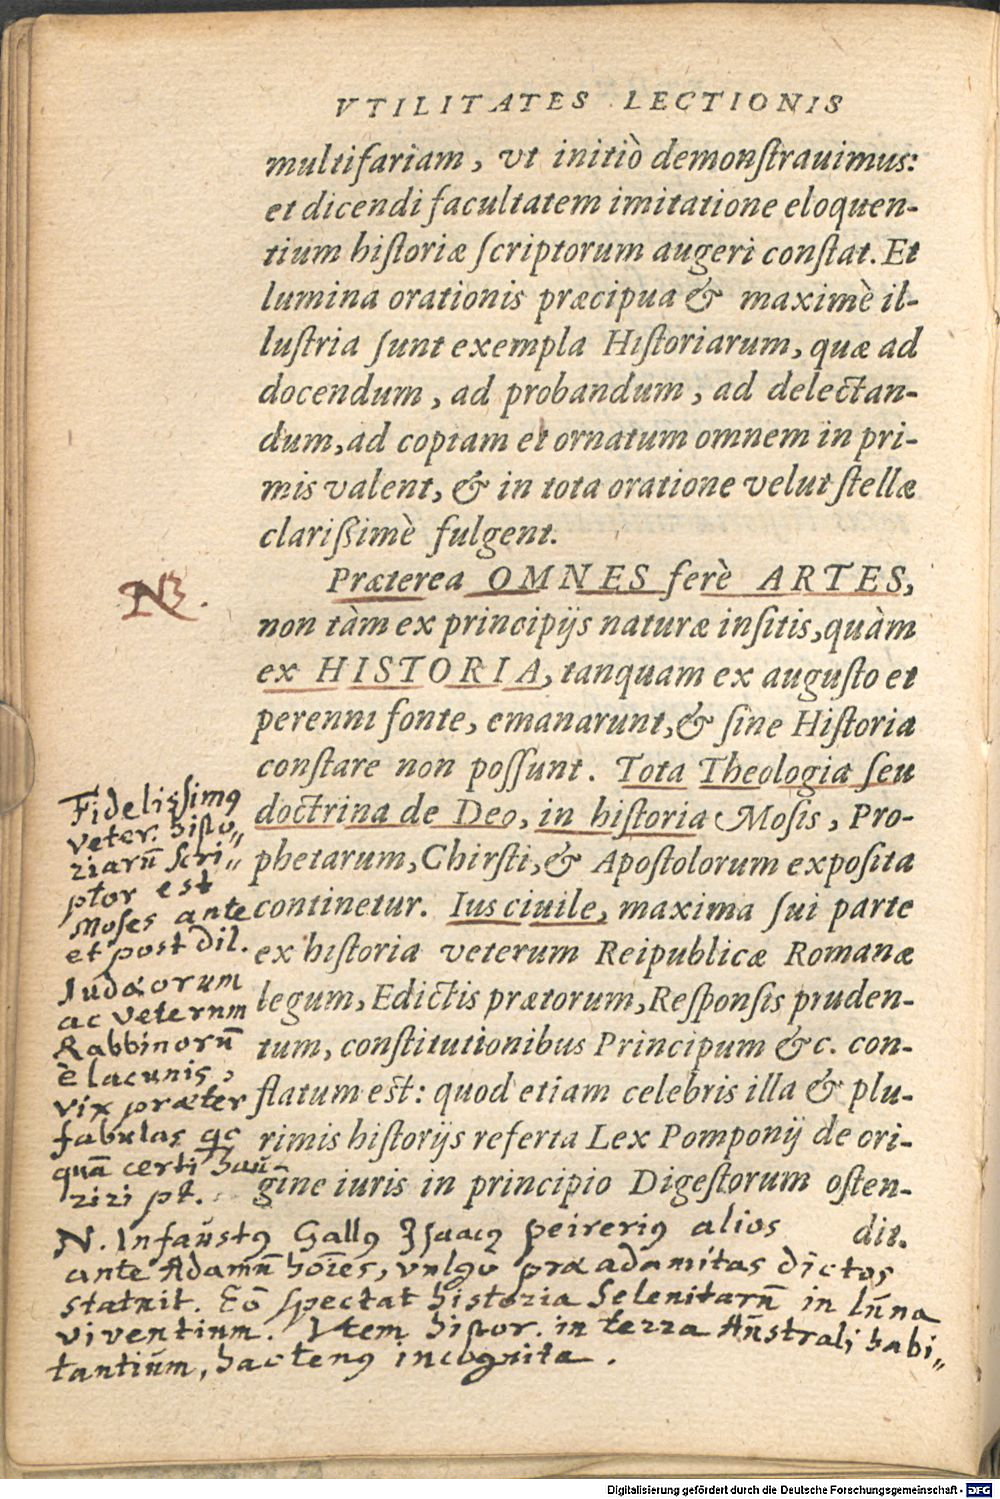 VTILITATES LECTIONIS
multifariam, vt initiò demonſtrauimus:
et dicendi facultatem imitatione eloquen-
tium hiſtoriæ ſcriptorum augeri conſtat. Et
lumina orationis præcipua & maximè il-
luſtria ſunt exempla Hiſtoriarum, quæ ad
docendum, ad probandum, ad delectan-
dum, ad copiam et ornatum omnem in pri-
mis valent, & in tota oratione velut ſtellæ
clarißimè fulgent.
Præterea OMNES ferè ARTES,
NB.
non tàm ex principijs naturæ inſitis, quàm
ex HISTORIA, tanquam ex auguſto et
perenni fonte, emanarunt, & ſine Hiſtoria
conſtare non poſſunt. Tota Theologia ſeu
doctrina de Deo, in hiſtoria Moſis, Pro-
phetarum, Chirſti, & Apoſtolorum expoſita
continetur. Ius ciuile, maxima ſui parte
ex hiſtoria veterum Reipublicæ Romanæ
legum, Edictis prætorum, Reſponſis pruden-
tum, conſtitutionibus Principum &c. con-
flatum eſt: quod etiam celebris illa & plu-
rimis hiſtorijs referta Lex Pomponij de ori-
gine iuris in principio Digeſtorum oſten-
dit.
Fidelisſimꝯ
veter. hiſto„
riarū ſcri„
ptor est
Moſes ante
et post dil.
Iudæorum
ac veterum
Rabbinorū
è lacunis,
vix præter
fabulas qc
quā certi hau
riri pt.
N. Infaustꝯ Gallꝯ Iſaacꝯ Peireriꝯ alios
ante Adamū hoīes, vulgo præadamitas dictos
statuit. Eō ſpectat historia Selenitarū in luna
viventium. Item hiſtor. in terra Australi habi„
tantium, hactenꝯ incognita.